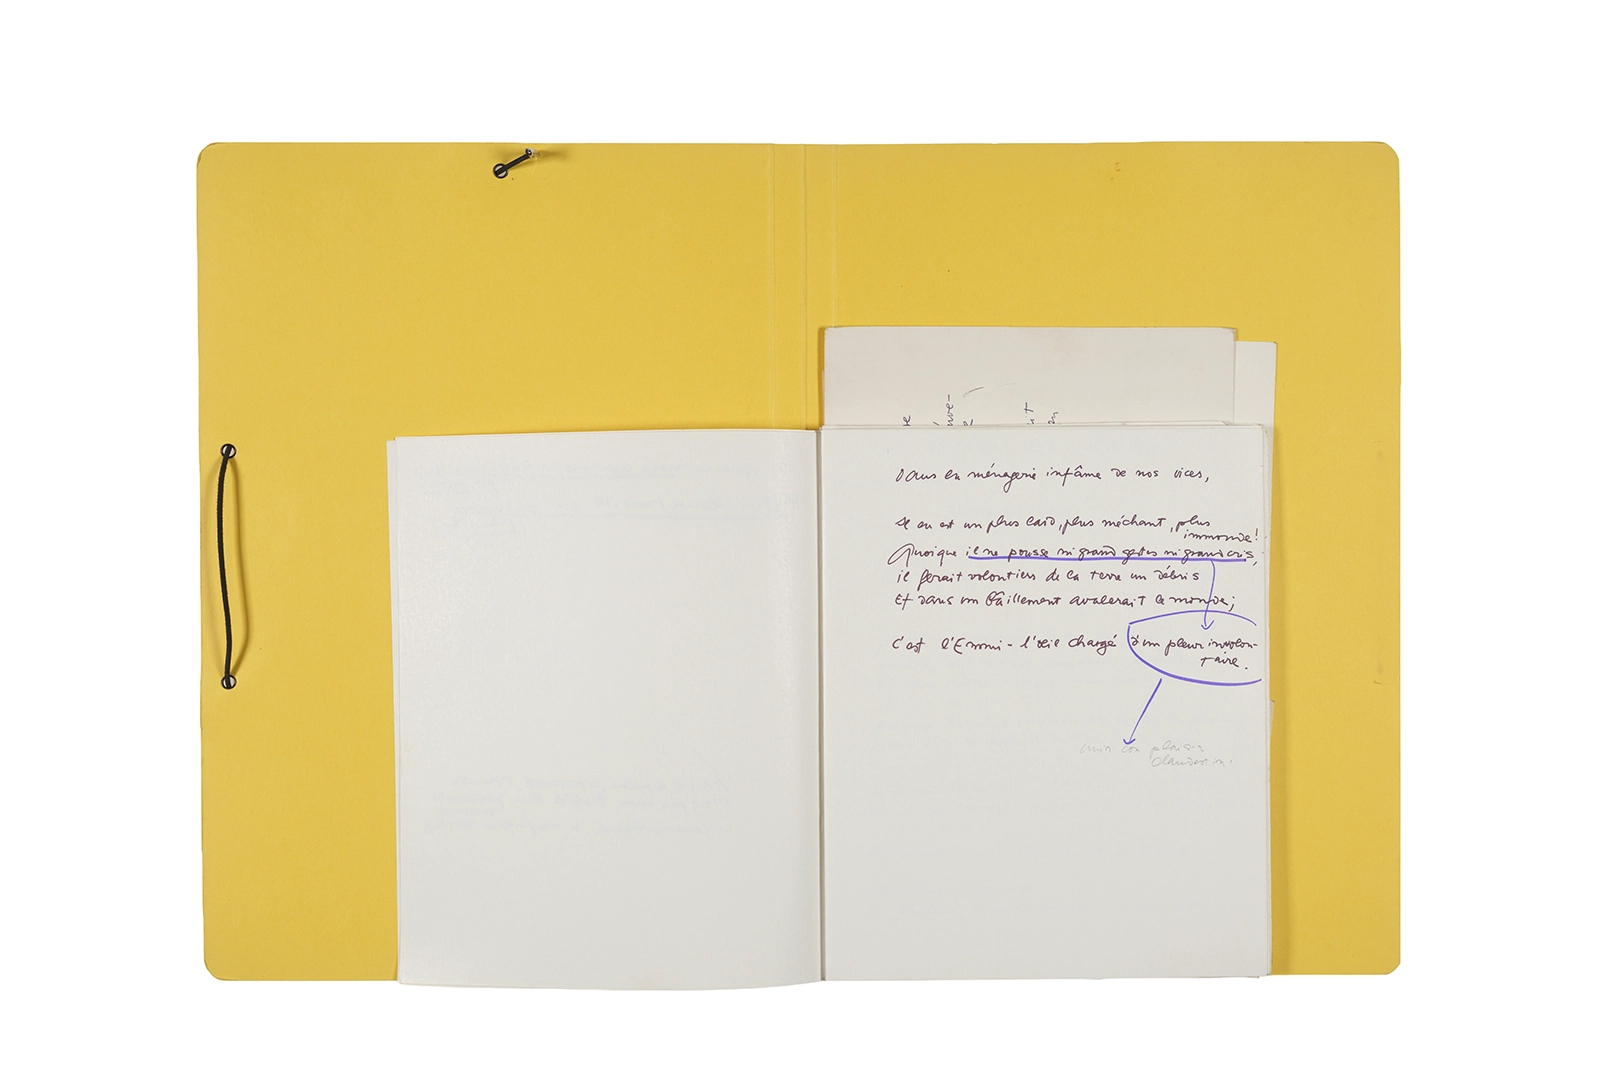 Dans la ménagerie infâme de nos vices,
Il en est un plus laid, plus méchant, plus
immonde!
Quoique il ne pousse ni grand gestes ni grand cris,
il ferait volontiers de la terre un débris
Et dans un bâillement avalerait le monde;
C'est l'Ennui - l'œil chargé d'un pleur involon-
taire.
plaisir
clandestin.